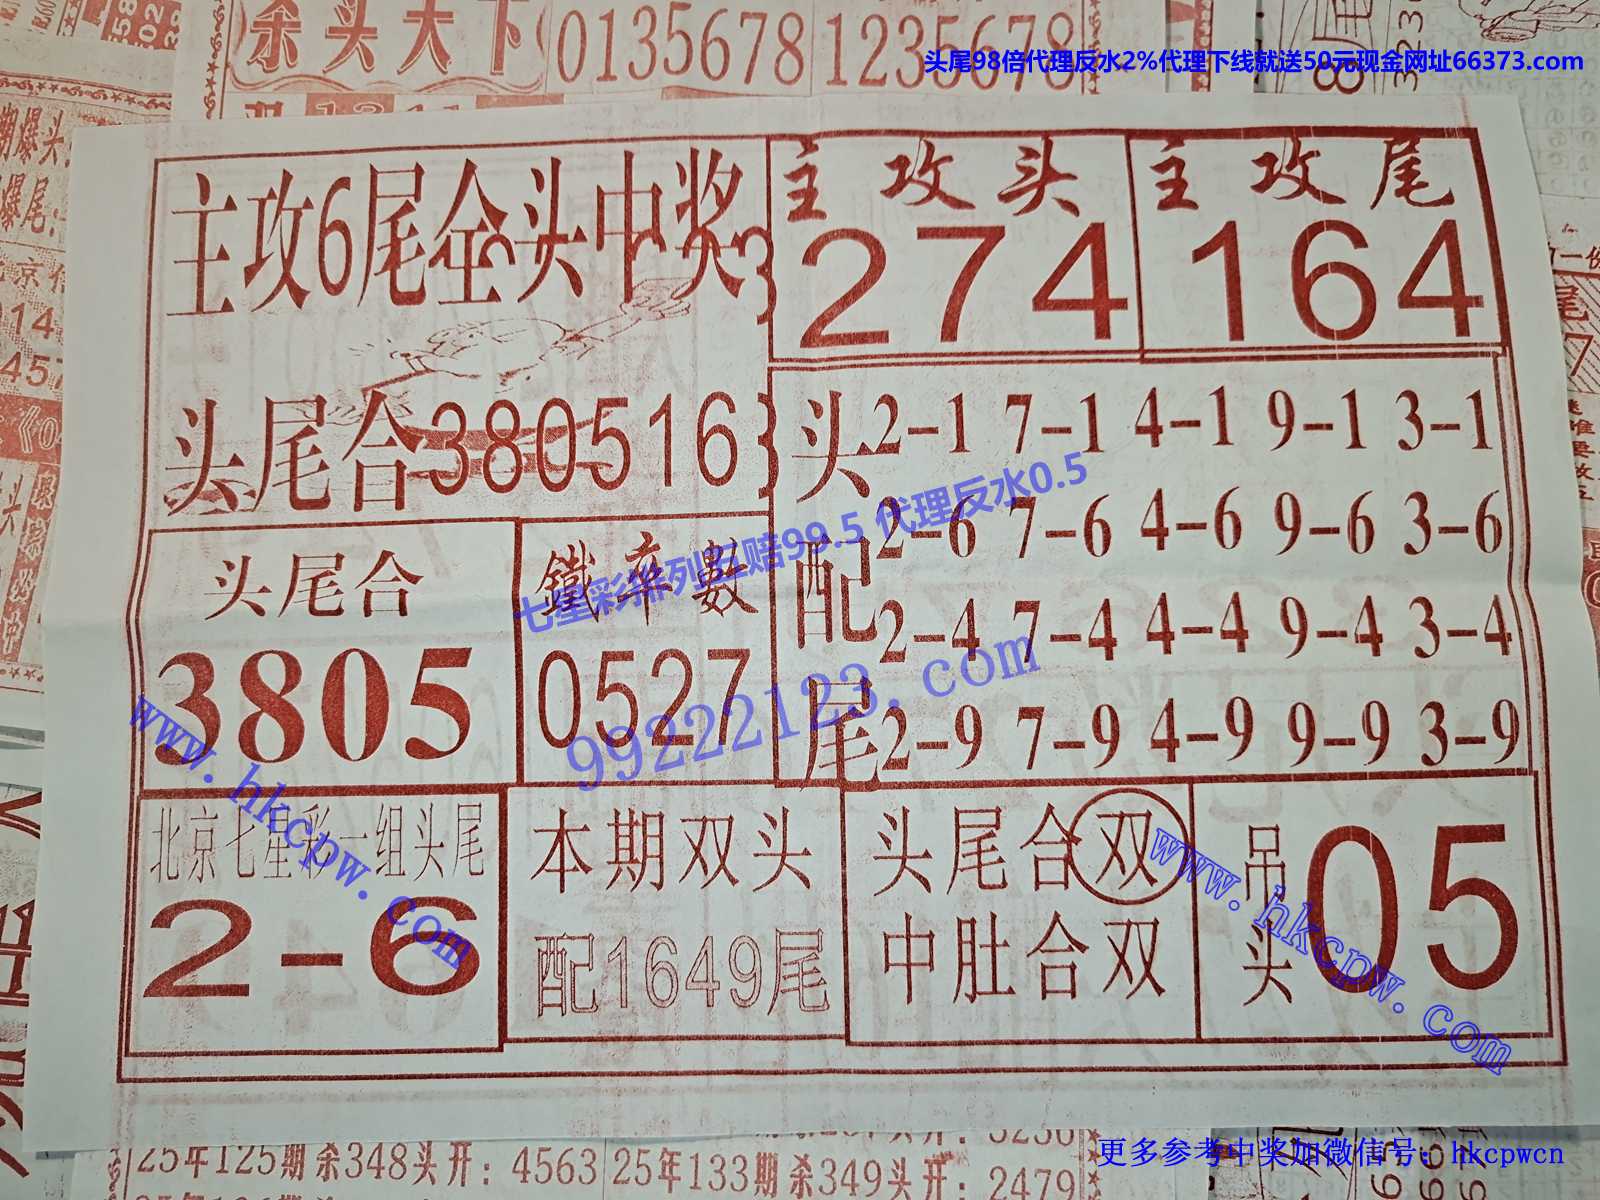 杀头天下 0135678 1235678
头尾98倍代理反水2%代理下线就送50元现金网址66373.com
主攻6尾全头中奖
主攻头
274
主攻尾
164
头尾合380516
头配尾
2-1 7-1 4-1 9-1 3-1
2-6 7-6 4-6 9-6 3-6
2-4 7-4 4-4 9-4 3-4
2-9 7-9 4-9 9-9 3-9
头尾合
3805
鐵率數
0527
七星彩排列五赔99.5 代理反水0.5
99222123.com
www.hkcpw.com
北京七星彩一组头尾
2-6
本期双头
配1649尾
头尾合双
中肚合双
吊头
05
www.hkcpw.com
25年125期杀348头开：4563 25年133期杀349头开：2479
更多参考中奖加微信号：hkcpwcn